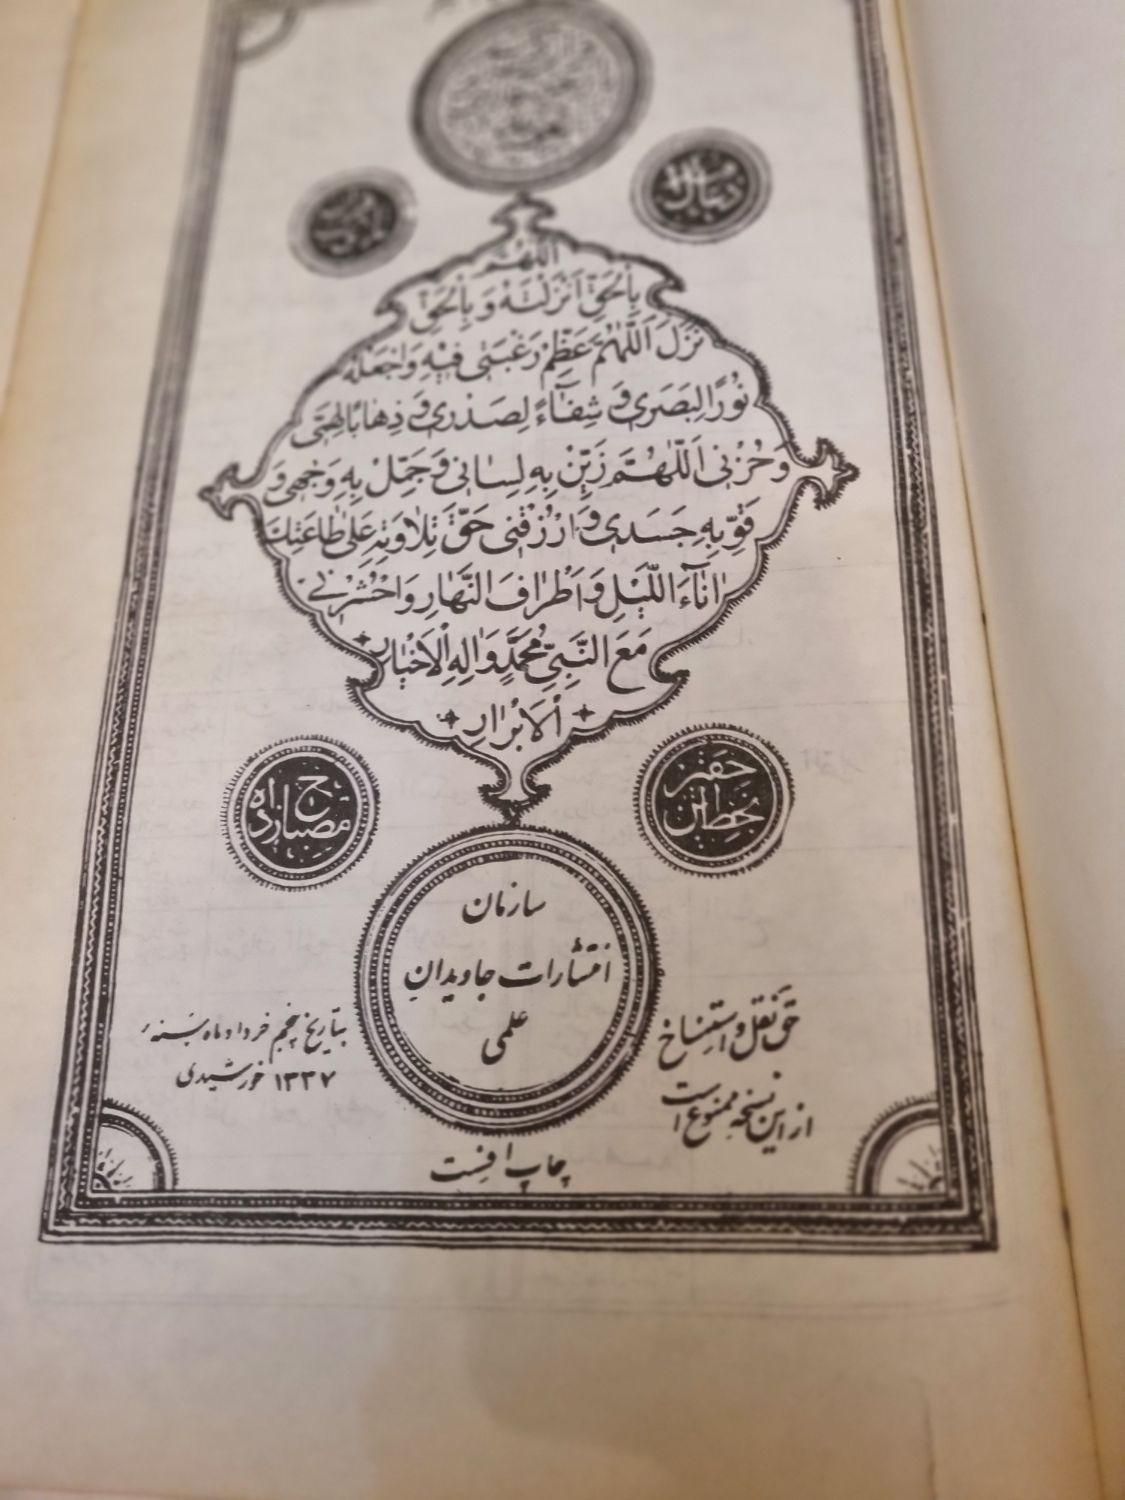 اَللّهُمَّ
بِالْحَقِّ اَنْزَلْتَهُ وَ بِالْحَقِّ
نَزَلَ اَللّهُمَّ عَظِّمْ رَغْبَتى فيهِ وَاجْعَلْهُ
نُورًا لِبَصَرى وَ شِفاءً لِصَدْرى وَ ذِهابًا لِهَمّى
وَ حُزْنى اَللّهُمَّ زَيِّنْ بِهِ لِسانى وَ جَمِّلْ بِهِ وَجْهى وَ
قَوِّ بِهِ جَسَدى وَ ارْزُقْنى حَقَّ تِلاوَتِهِ عَلى طاعَتِكَ
اناءَ اللَّيْلِ وَ اَطْرافَ النَّهارِ وَ احْشُرْنى
مَعَ النَّبِىِّ مُحَمَّدٍ وَ الِهِ الْاَخْيارِ
الْاَبْرارِ
حقير
بخط
ح
مصباح زاده
سازمان
انتشارات جاویدانِ
علمی
حق نقل و استنساخ
از این نسخه ممنوع است
بتاریخ پنجم خرداد ماه سنه
۱۳۳۷ خورشیدی
چاپ افست